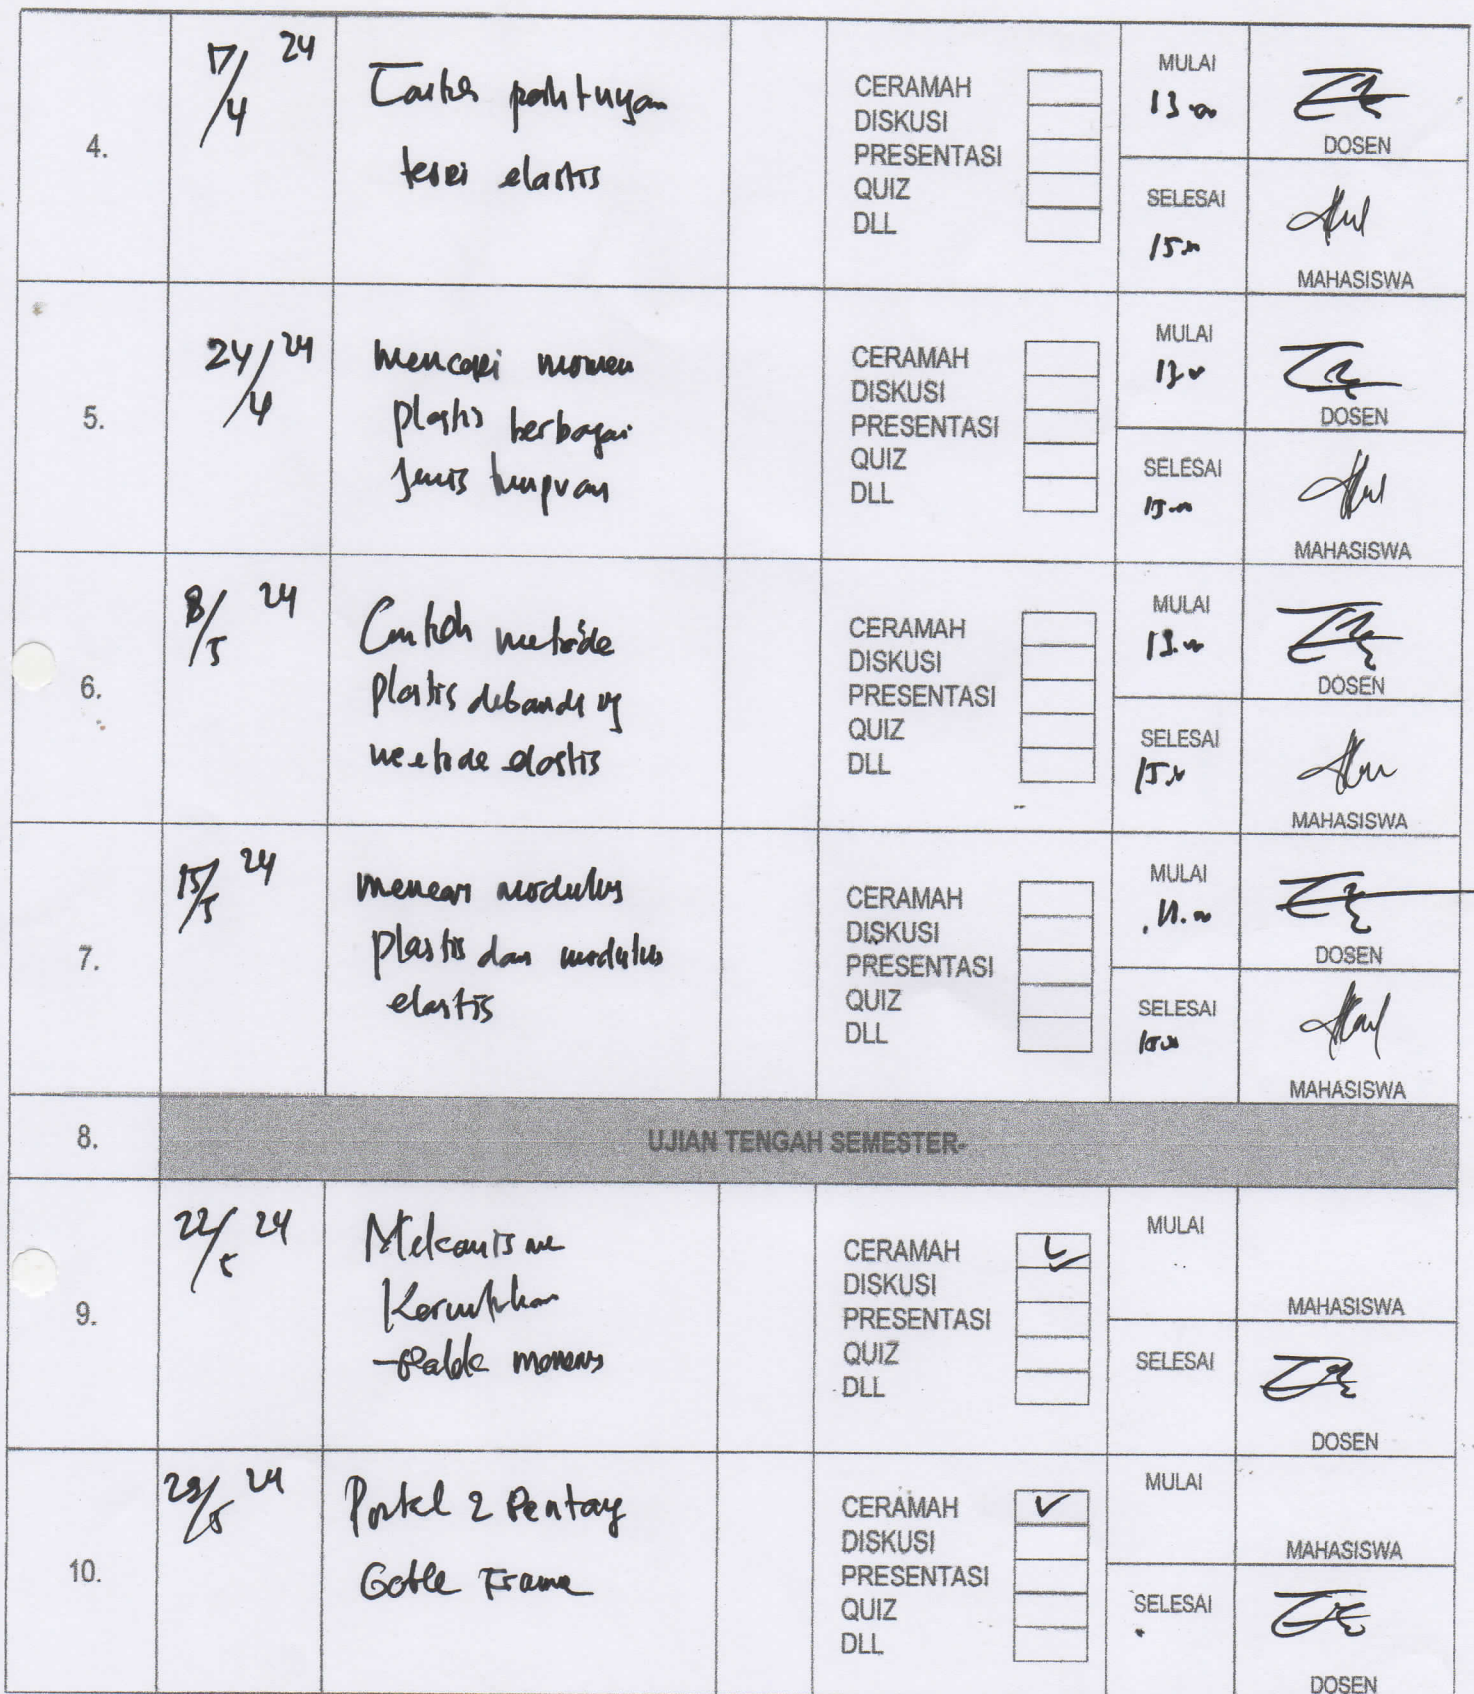 4.
17/4 24
Contoh perhitungan
teori elastis
CERAMAH
DISKUSI
PRESENTASI
QUIZ
DLL
MULAI
13.00
DOSEN
SELESAI
15.00
MAHASISWA
5.
24/4 24
mencari momen
plastis berbagai
jenis tumpuan
CERAMAH
DISKUSI
PRESENTASI
QUIZ
DLL
MULAI
DOSEN
SELESAI
15.00
MAHASISWA
6.
8/5 24
Contoh metode
plastis dibanding
metode elastis
CERAMAH
DISKUSI
PRESENTASI
QUIZ
DLL
MULAI
13.00
DOSEN
SELESAI
MAHASISWA
7.
15/5 24
mencari modulus
plastis dan modulus
elastis
CERAMAH
DISKUSI
PRESENTASI
QUIZ
DLL
MULAI
DOSEN
SELESAI
MAHASISWA
8.
UJIAN TENGAH SEMESTER-
9.
22/5 24
Mekanisme
Keruntuhan
CERAMAH
DISKUSI
PRESENTASI
QUIZ
DLL
MULAI
MAHASISWA
SELESAI
DOSEN
10.
29/5 24
Portal 2 Bentang
Gable Frame
CERAMAH
DISKUSI
PRESENTASI
QUIZ
DLL
MULAI
MAHASISWA
SELESAI
DOSEN